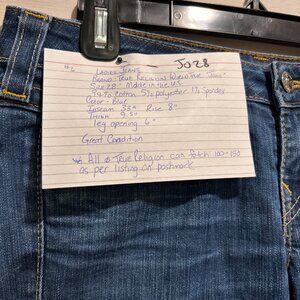 #6 JO28
Ladies Jeans
Brand - True Religion World Tour "Joey"
Size 28" Made in the U.S.
94% cotton 5% polyester 1% Spandex
Color - Blue
Inseam 33" Rise 8"
Thigh 9.5"
leg opening 6"
Great Condition
All True Religion can fetch 100-150
as per listing on poshmark